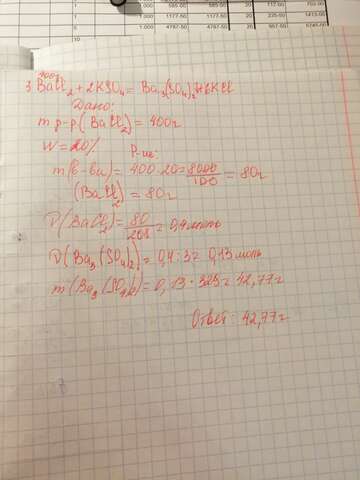 1 1.000 585-00 585-00 20 712-00
1 1.000 1177-50 1177-50 20 235-50 1413-00
1 1.000 4787-50 4787-50 20
400г
3 BaCl2 + 2KSO4 = Ba3(SO4)2 + 6KCl
Дано:
m р-р (BaCl2) = 400г
W = 20%
Р-ие:
m(в-ва) = 400·20 = 8000/100 = 80г
(BaCl2) = 80г
ν(BaCl2) = 80/208 = 0,4 моль
ν(Ba3(SO4)2) = 0,4:3 = 0,13 моль
m(Ba3(SO4)2) = 0,13·329 = 42,77г
Ответ: 42,77г